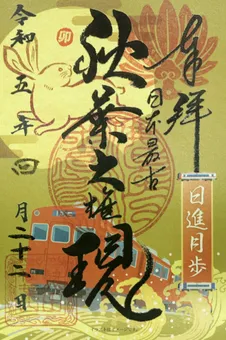 奉拝
日本最古
秋葉大権現
日進月歩
卯
令和五年四月二十二日